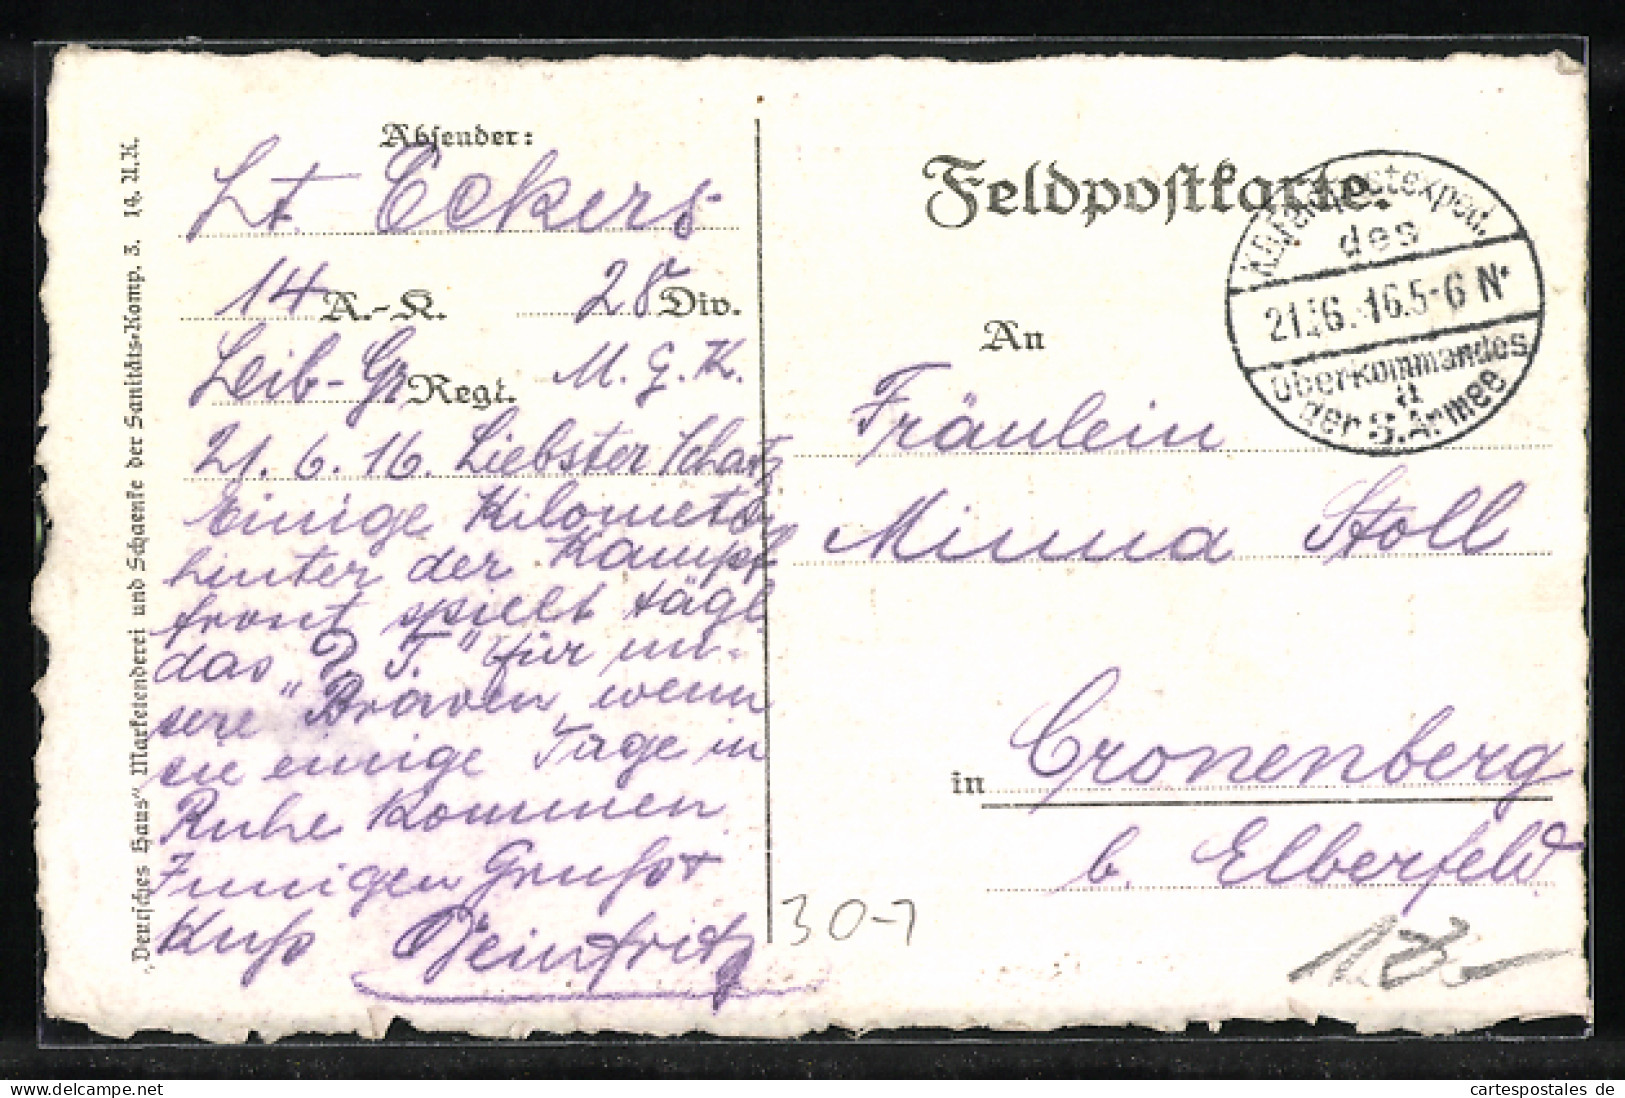 „Deutsches Haus“ Marketenderei und Schaenke der Sanitäts-Komp. 3. 14. A.K.
Absender:
Lt. Eckers
14 A.-K. 28 Div.
Leib-Gr Regt. M. G. K.
21. 6. 16. Liebster Schatz
Einige Kilometer
hinter der Kampf
front spielt tägl.
das D. T." für un-
sere "Braven, wenn
sie einige Tage in
Ruhe kommen.
Innigen Gruß +
Kuß Dein Fritz
Feldpostkarte.
K.D. Feldpostexped.
des
21. 6. 16. 5-6 N
Oberkommandos
der 5. Armee
An
Fräulein
Minna Stoll
in Cronenberg
b. Elberfeld
30-7
cartespostales de